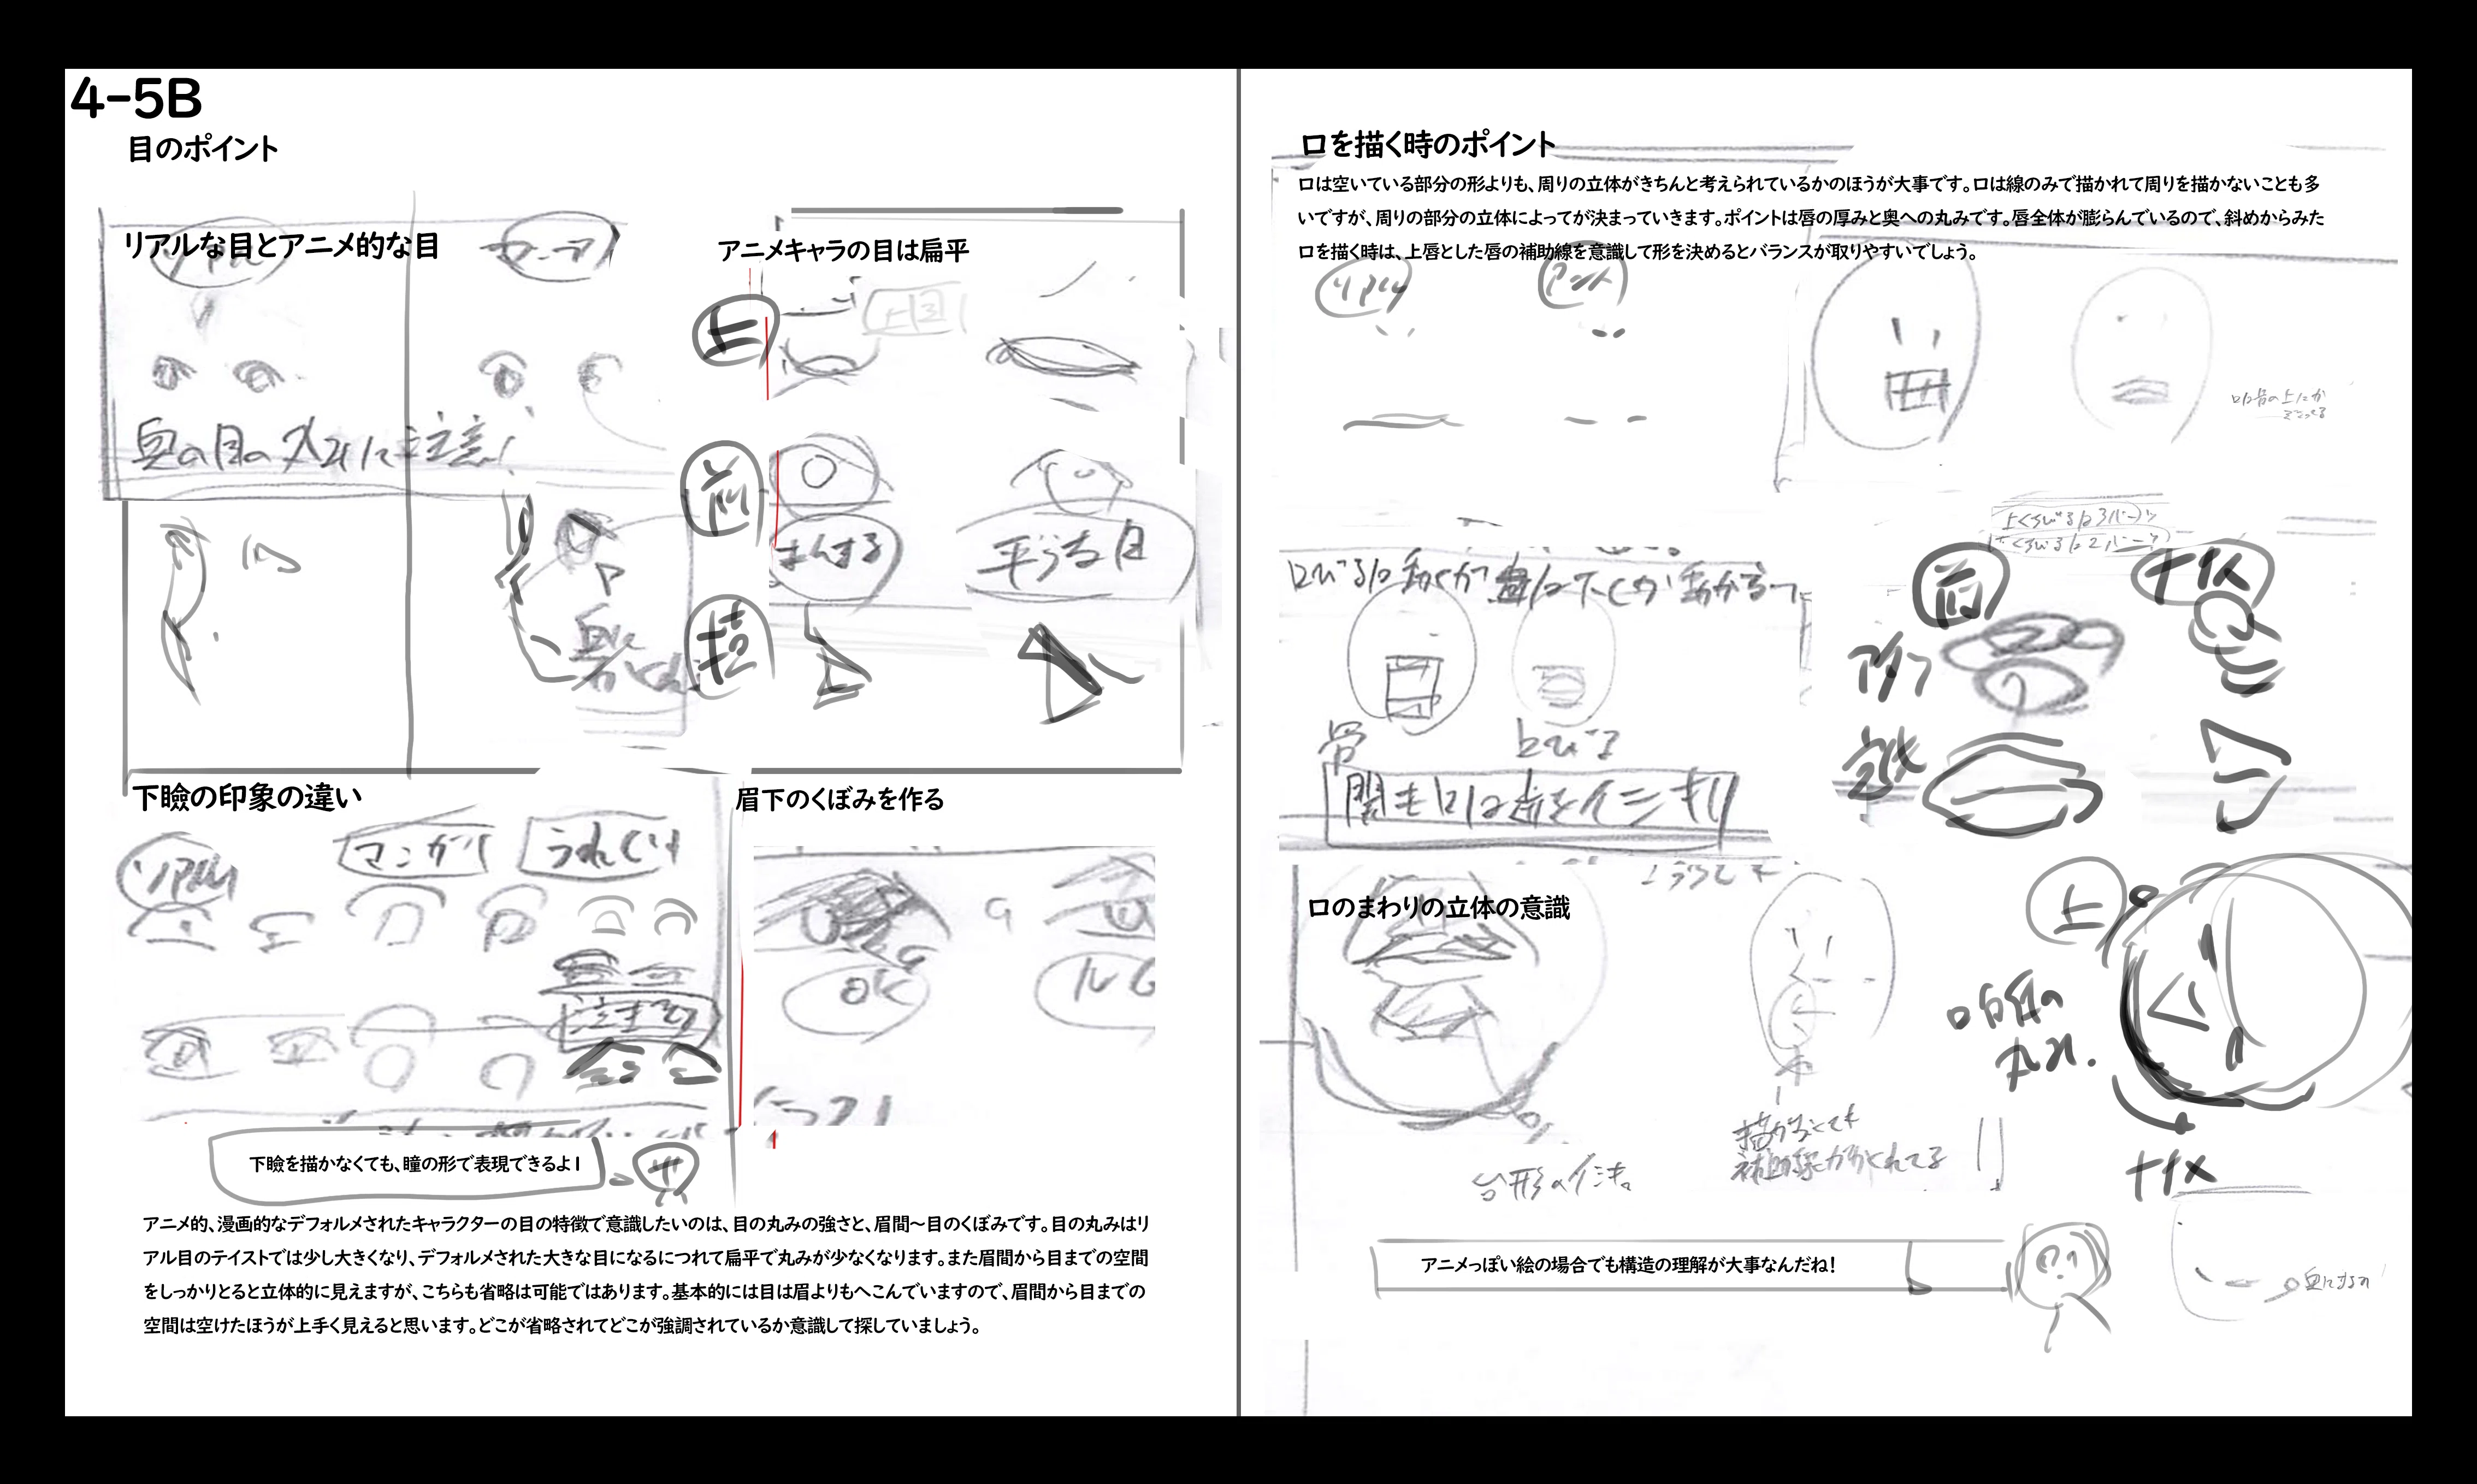 4-5B
目のポイント
リアルな目とアニメ的な目
リアル
奥の目の丸みに注意!
アニメキャラの目は扁平
上
前
平らな目
横
下瞼の印象の違い
リアル
マンガ
眉下のくぼみを作る
OK
NG
下瞼を描かなくても、瞳の形で表現できるよ!
アニメ的、漫画的なデフォルメされたキャラクターの目の特徴で意識したいのは、目の丸みの強さと、眉間～目のくぼみです。目の丸みはリ
アル目のテイストでは少し大きくなり、デフォルメされた大きな目になるにつれて扁平で丸みが少なくなります。また眉間から目までの空間
をしっかりとると立体的に見えますが、こちらも省略は可能ではあります。基本的には目は眉よりもへこんでいますので、眉間から目までの
空間は空けたほうが上手く見えると思います。どこが省略されてどこが強調されているか意識して探していましょう。
口を描く時のポイント
口は空いている部分の形よりも、周りの立体がきちんと考えられているかのほうが大事です。口は線のみで描かれて周りを描かないことも多
いですが、周りの部分の立体によってが決まっていきます。ポイントは唇の厚みと奥への丸みです。唇全体が膨らんでいるので、斜めからみた
口を描く時は、上唇とした唇の補助線を意識して形を決めるとバランスが取りやすいでしょう。
リアル
上くちびるは3パーツ
下くちびるは2パーツ
前
ナナメ
骨
口のまわりの立体の意識
上
口自体の
丸み.
ナナメ
描かなくても
補助線がかくれてる
台形のイシキ。
アニメっぽい絵の場合でも構造の理解が大事なんだね!